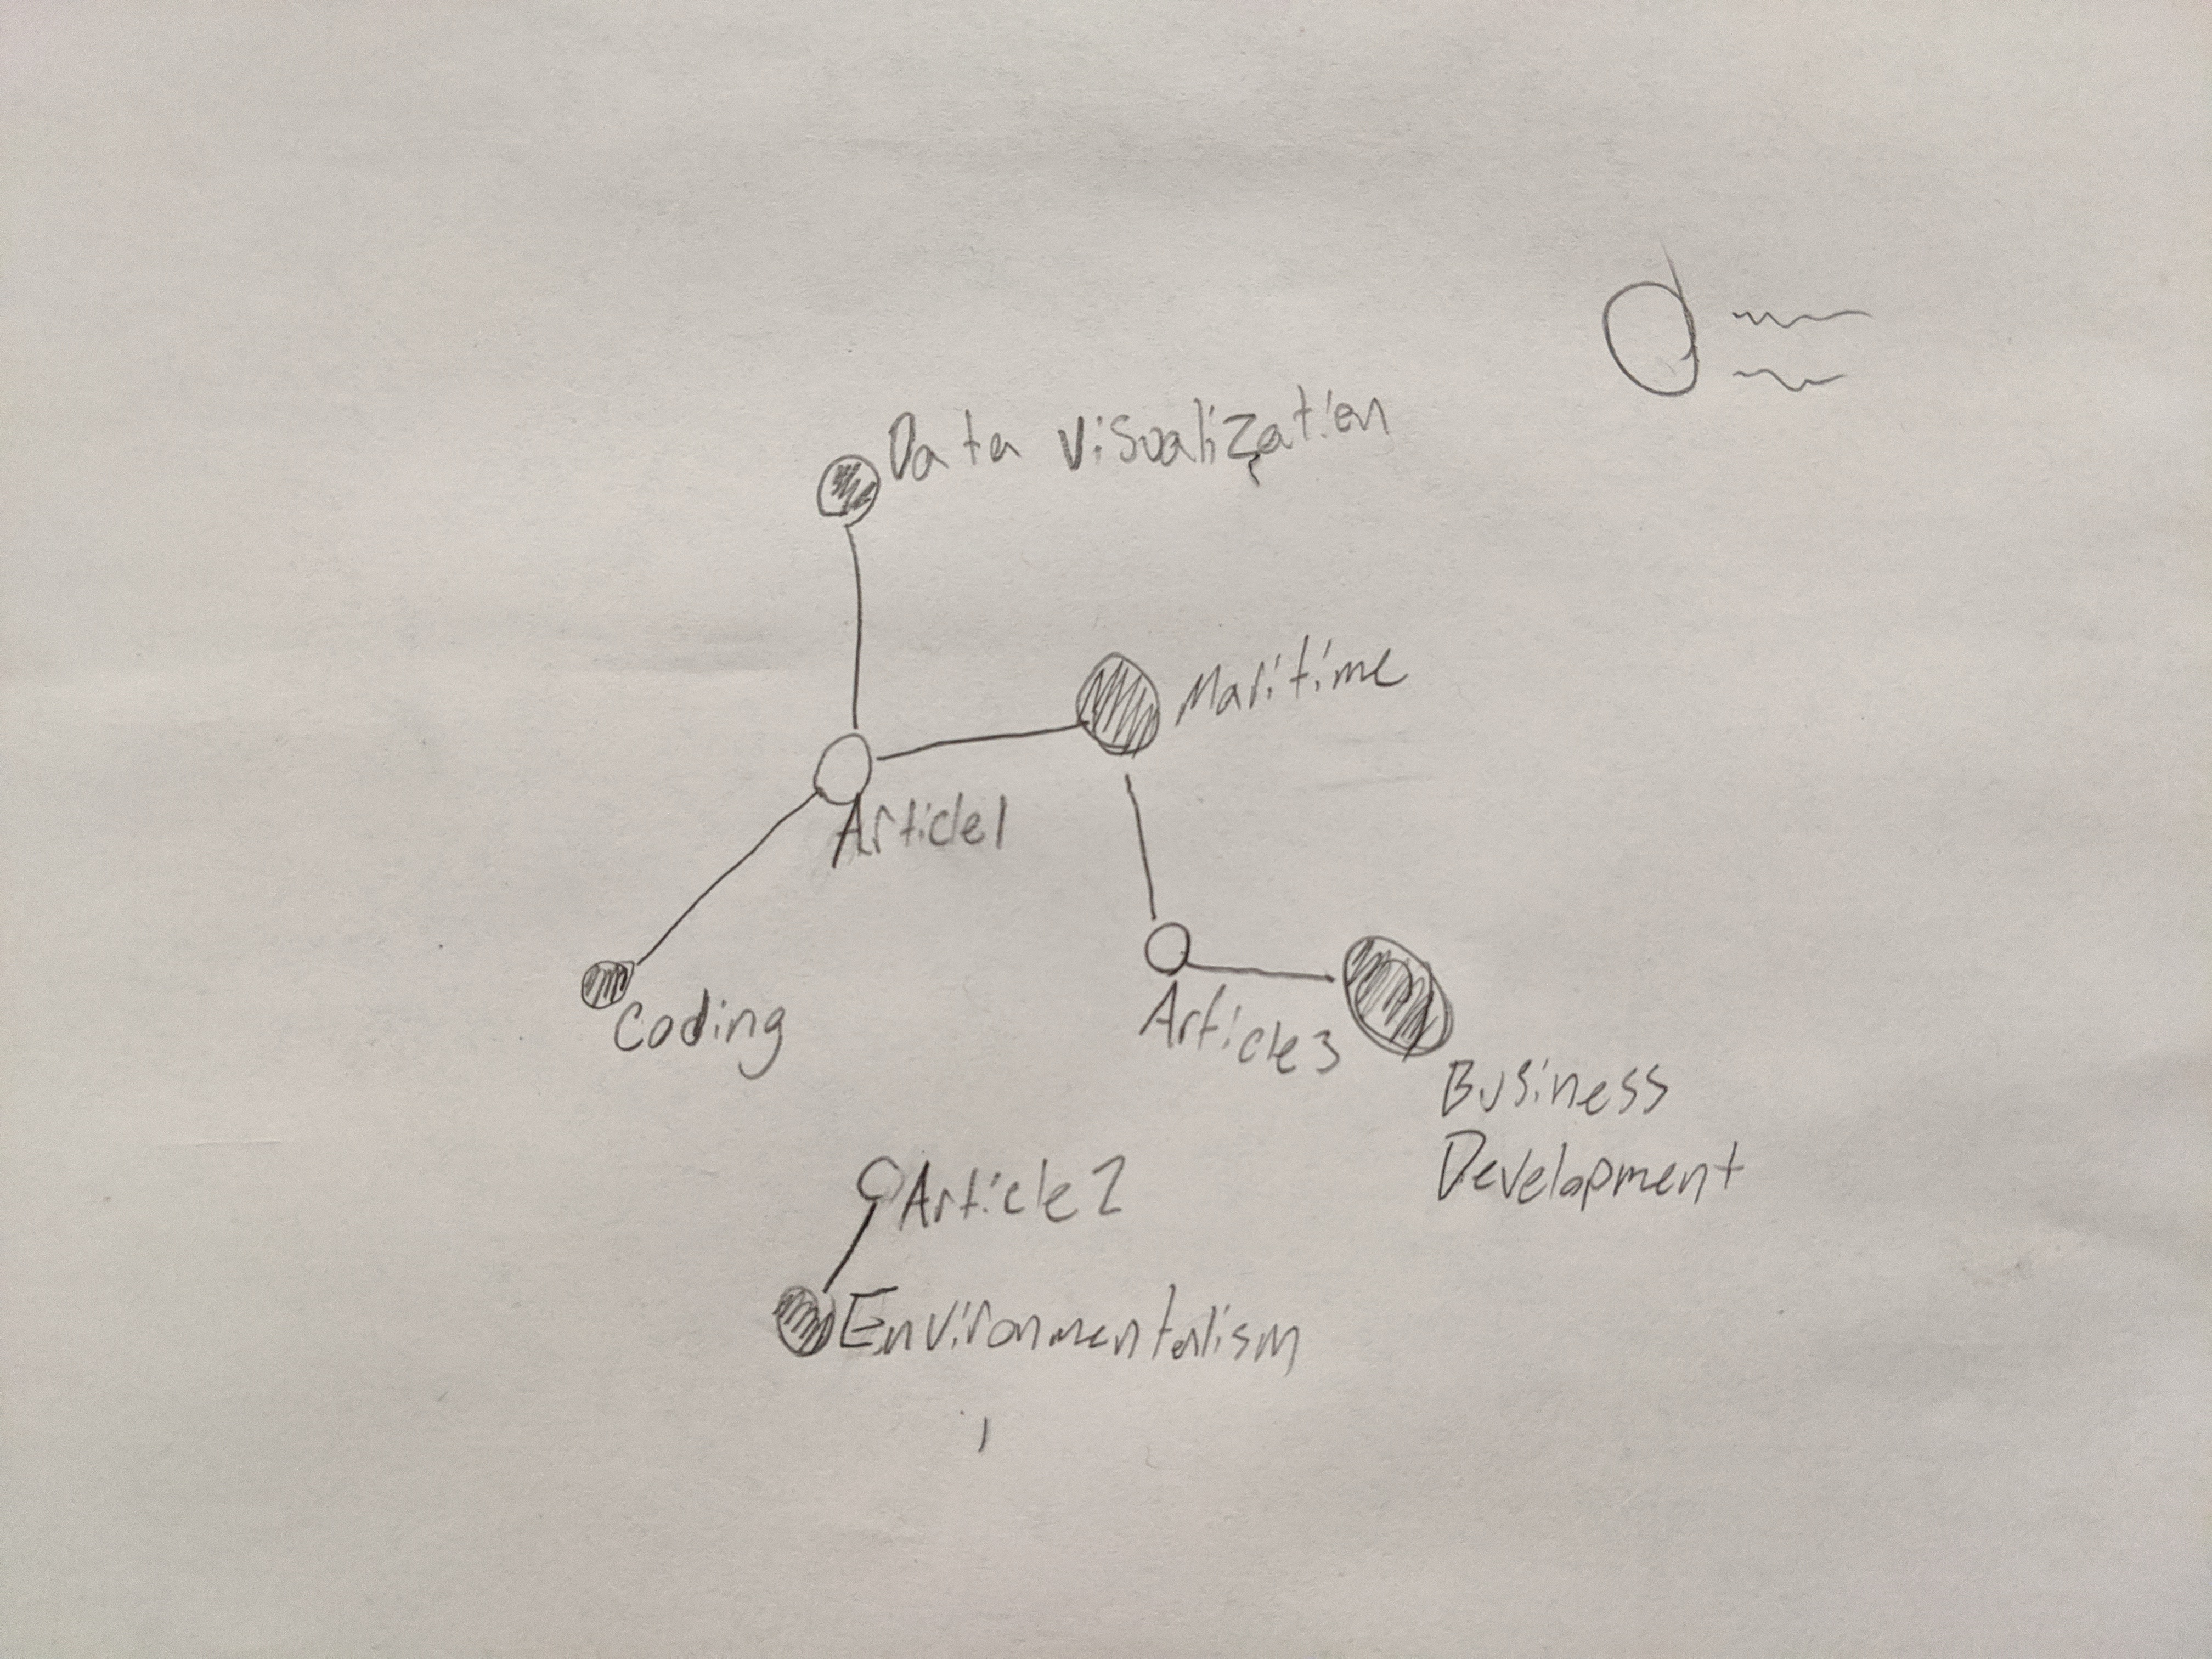 Data visualization
Maritime
Article1
Coding
Article3
Business
Development
Article2
Environmentalism